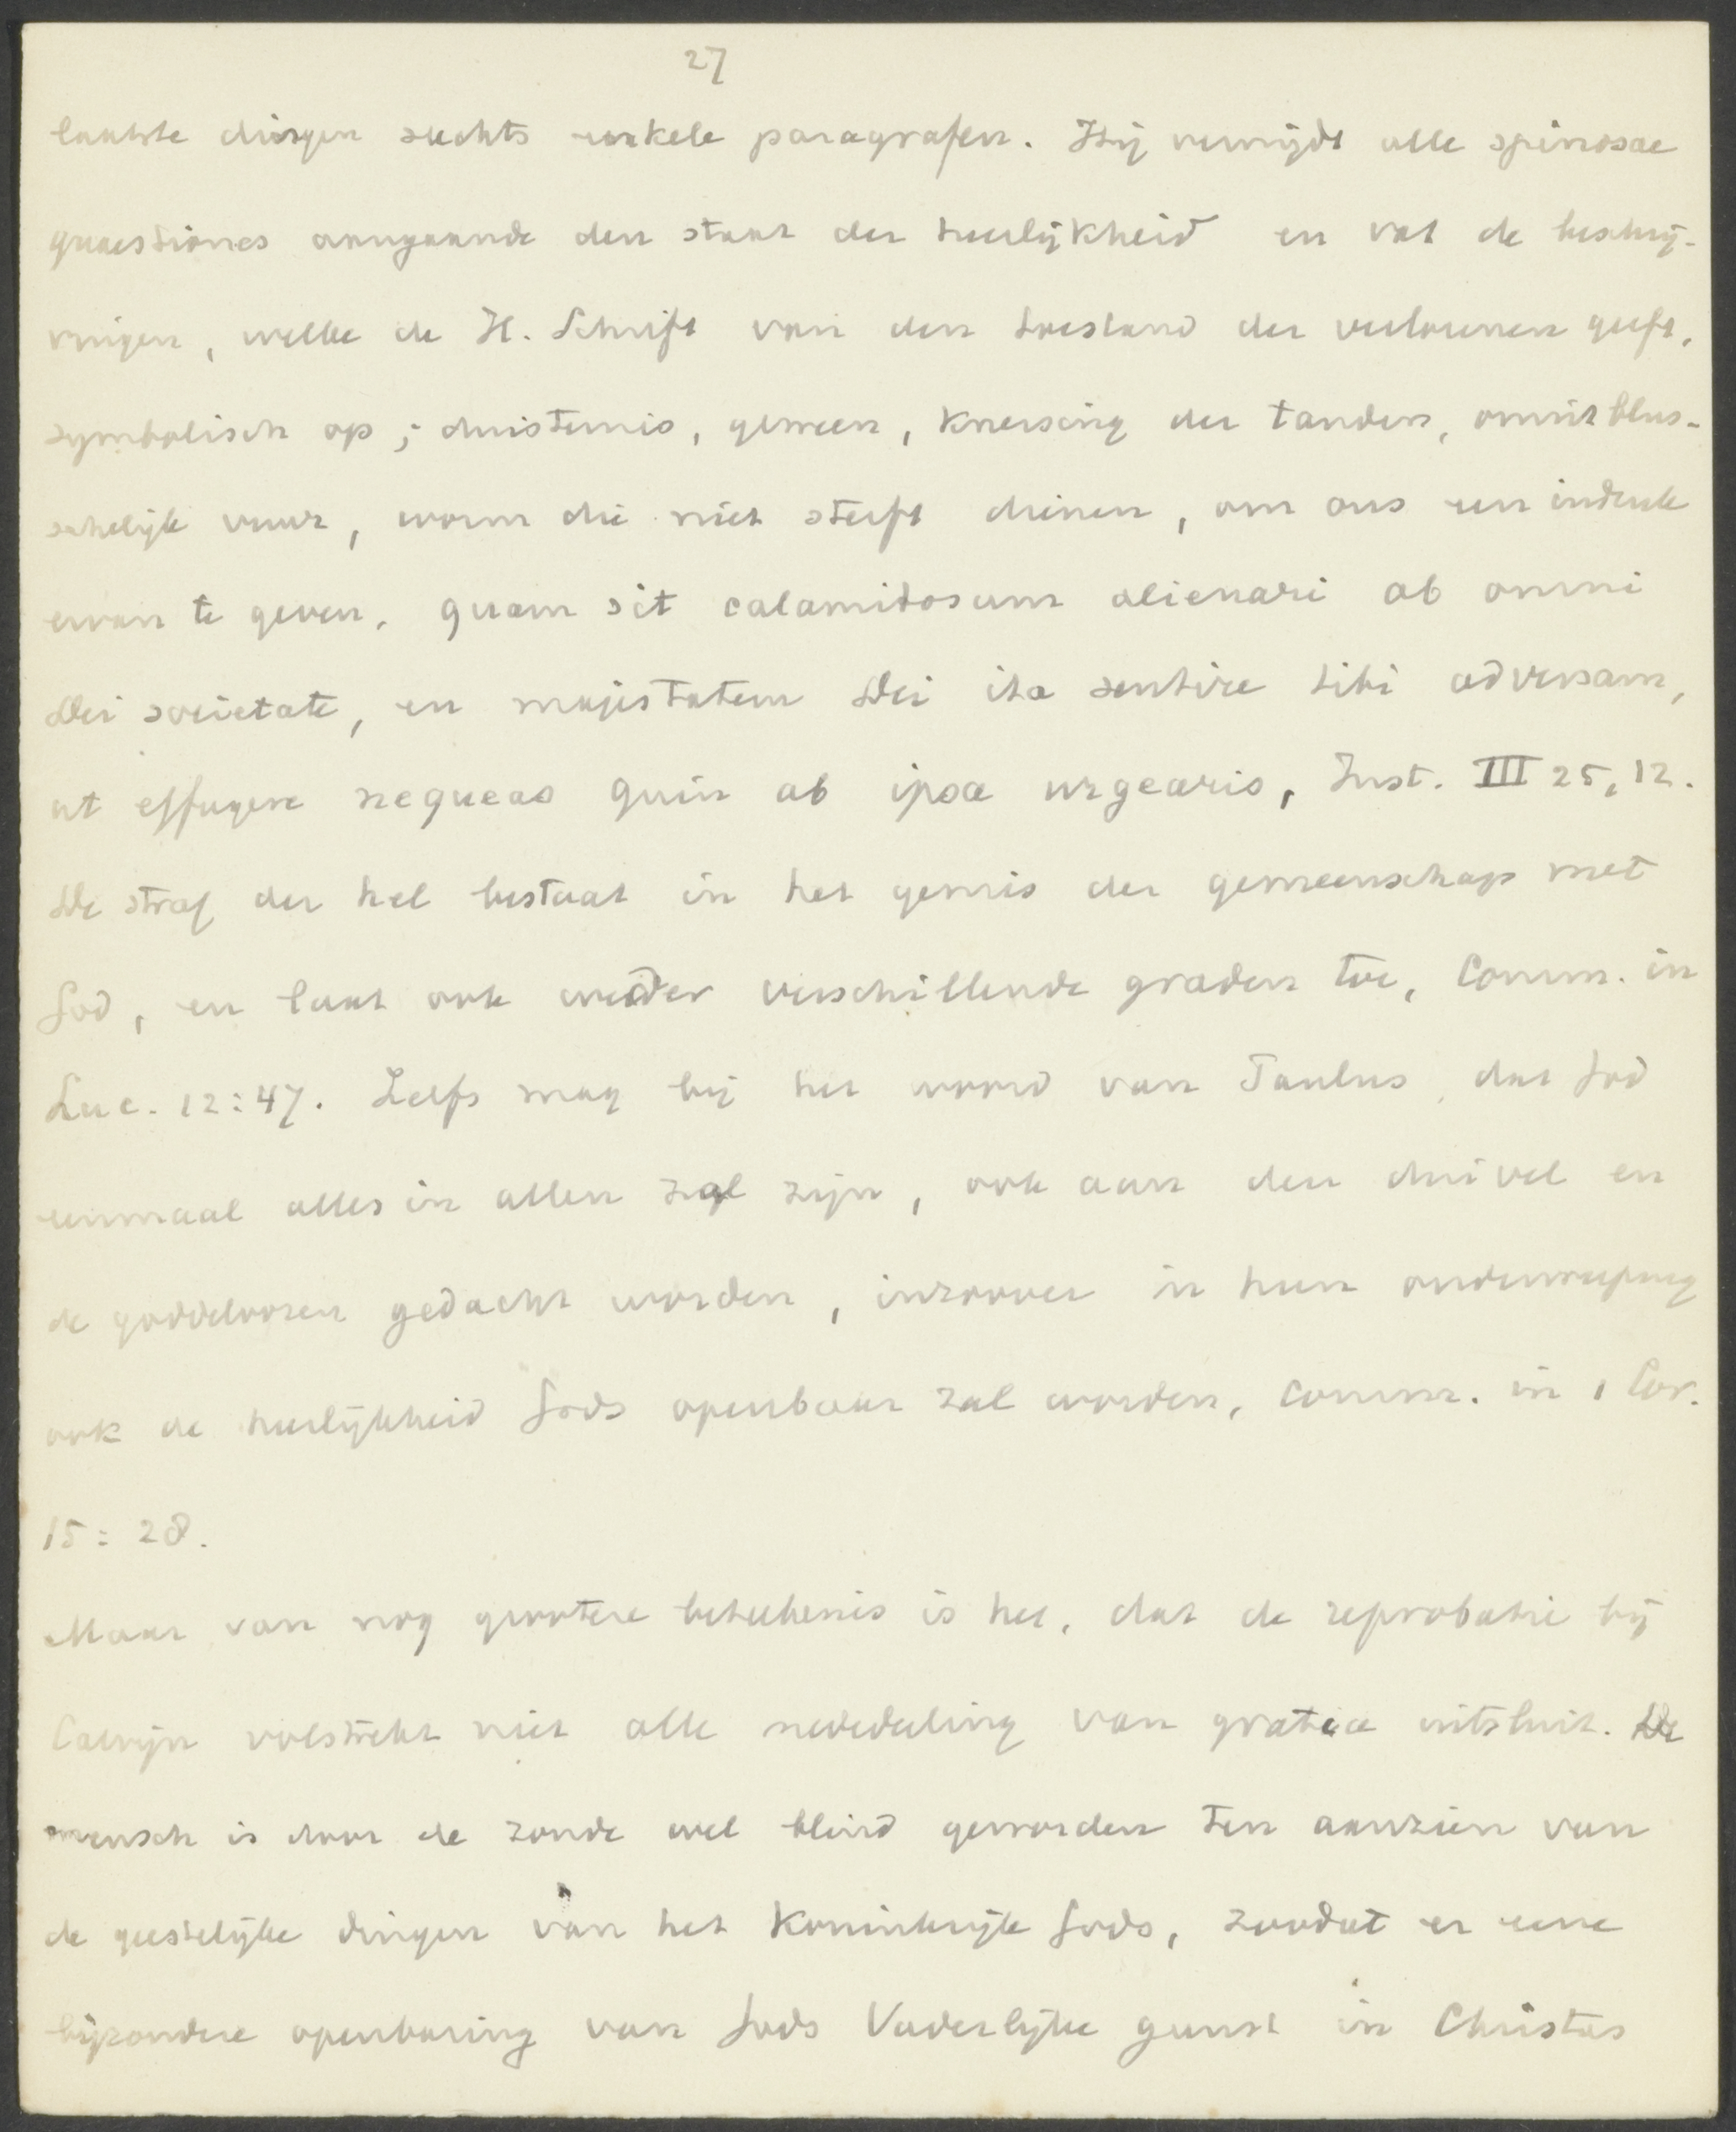 27
laatste dingen slechts enkele paragrafen. Hij vermijdt alle spinosae
quaestiones aangaande den staat der heerlijkheid en vat de beschrij-
vingen, welke de H. Schrift van den toestand der verlorenen geeft,
symbolisch op; duisternis, geween, knersing der tanden, onuitblus-
schelijk vuur, worm die niet sterft dienen, om ons een indruk
ervan te geven, quam sit calamitosum alienari ab omni
Dei societate, en majestatem Dei ita sentire tibi adversam,
ut effugere nequeas quin ab ipsa urgearis, Inst. III 25, 12.
De straf der hel bestaat in het gemis der gemeenschap met
God, en laat ook weder verschillende graden toe, Comm. in
Luc. 12:47. Zelfs mag bij het woord van Paulus, dat God
eenmaal alles in allen zal zijn, ook aan den duivel en
de goddeloozen gedacht worden, inzoover in hun onderwerping
ook de heerlijkheid Gods openbaar zal worden, Comm. in 1 Cor.
15:28.
Maar van nog grootere beteekenis is het, dat de reprobatie bij
Calvijn volstrekt niet alle mededeeling van gratia uitsluit. De
mensch is door de zonde wel blind geworden ten aanzien van
de geestelijke dingen van het Koninkrijk Gods, zoodat er eene
bijzondere openbaring van Gods Vaderlijke gunst in Christus